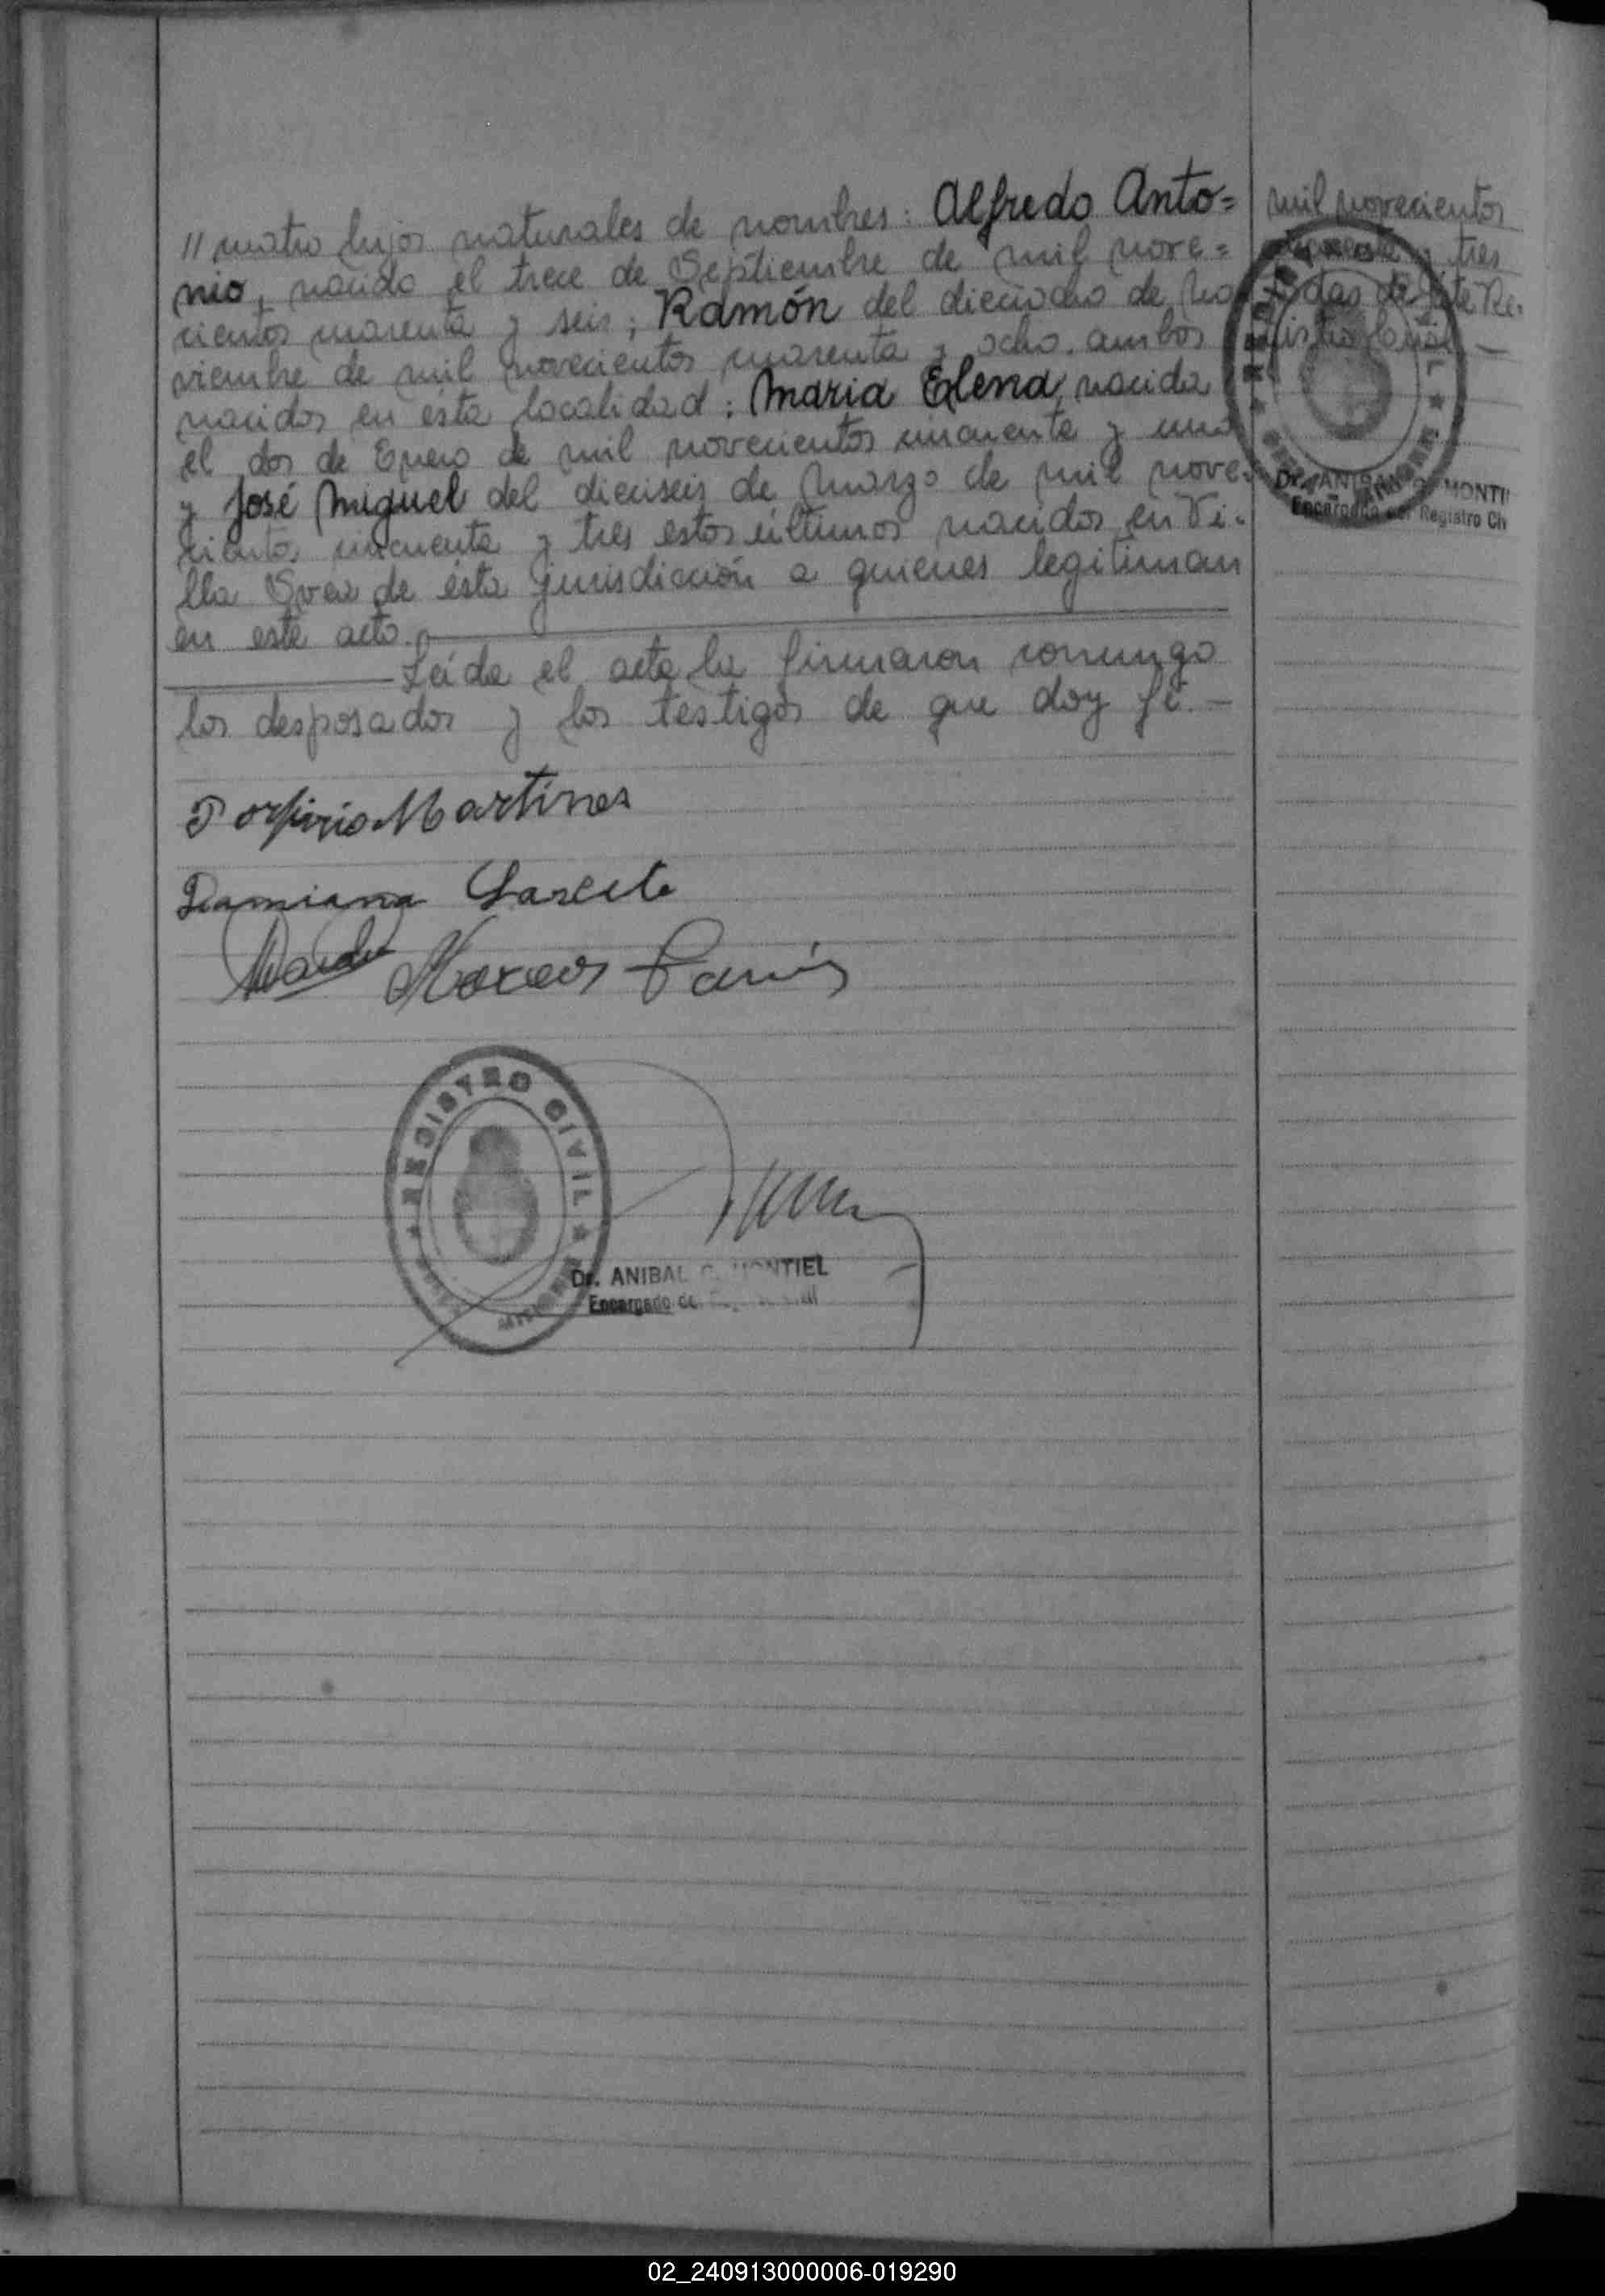 // cuatro hijos naturales de nombres: Alfredo Anto=
nio, nacido el trece de Septiembre de mil nove=
cientos cuarenta y seis; Ramón del dieciocho de No
viembre de mil novecientos cuarenta y ocho. ambos
nacidos en ésta localidad; Maria Elena, nacida
el dos de Enero de mil novecientos cincuenta y uno
y José Miguel del dieciseis de Marzo de mil nove-
cientos cincuenta y tres estos últimos nacidos en Vi-
lla de ésta jurisdicción a quienes legitiman
en este acto.
Leída el acta la firmaron conmigo
los desposados y los testigos de que doy fé.-
mil novecientos
y tres
de éste Re-
Dr. ANIBAL MONTI
Encargado del Registro Ci
Porfirio Martines
Damiana
Marcos
REGISTRO CIVIL
Dr. ANIBAL C. MONTIEL
Encargado
02_240913000006-019290